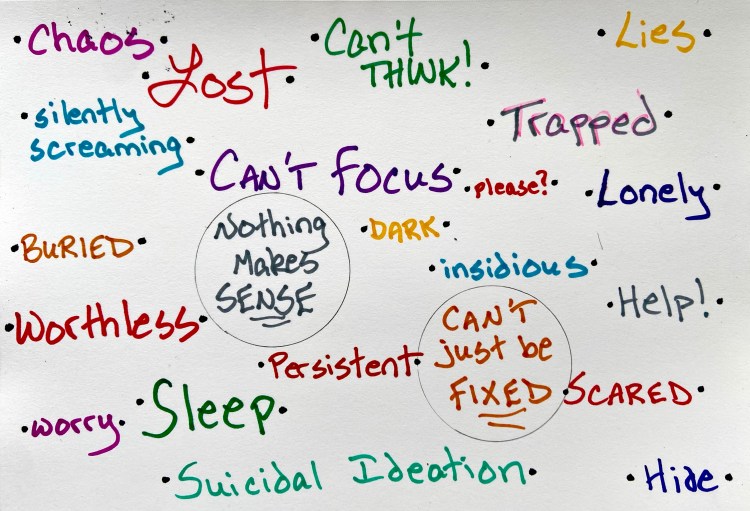 • Chaos •
• Lost •
• Can't
THINK! •
• Lies •
• silently
screaming •
• Trapped •
• CAN'T FOCUS •
• please? •
• Lonely •
• BURIED •
Nothing
Makes
SENSE
• DARK •
• insidious •
• Help! •
• Worthless •
CAN'T
just be
FIXED
• Persistent •
• SCARED •
• worry •
• Sleep •
• Suicidal Ideation •
• Hide •